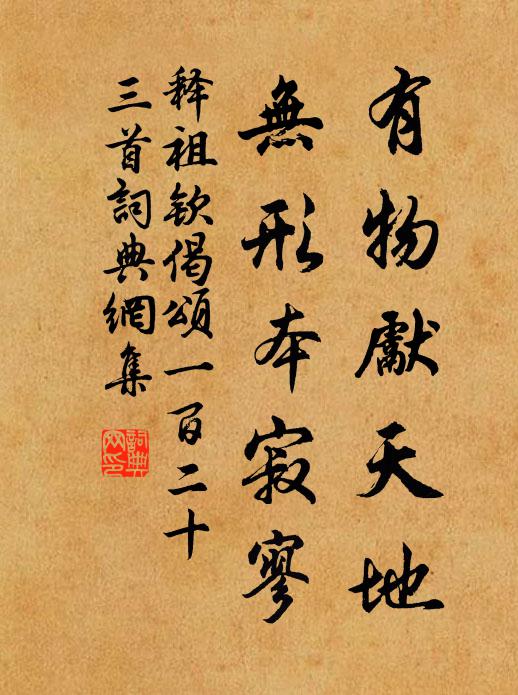 有物獻天地
無形本寂寥
释祖欽偈頌一百二十
三首詞典網集
詞典網印